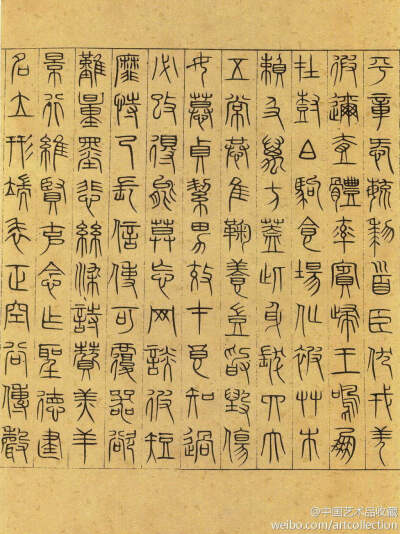 平章愛育黎首臣伏戎羌
遐邇壹體率賓歸王鳴鳳
在樹白駒食場化被艸木
賴及萬方蓋此身髮四大
五常恭惟鞠養豈敢毀傷
女慕貞絜男效才良知過
必改得能莫忘罔談彼短
靡恃己長信使可覆器欲
難量墨悲絲染詩贊羔羊
景行維賢克念作聖德建
名立形端表正空谷傳聲
@中国艺术品收藏
weibo.com/artcollection